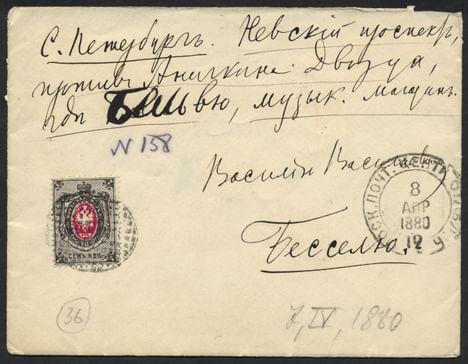 С. Петербургъ. Невскій проспектъ,
противъ Аничкина Дворца,
музык. магазинъ
N 158
Василію Васильев
Бесселю.
МОСК. ПОЧТ.
8
АПР
1880
12
СЕМЬ КОП.
36
7, IV, 1880